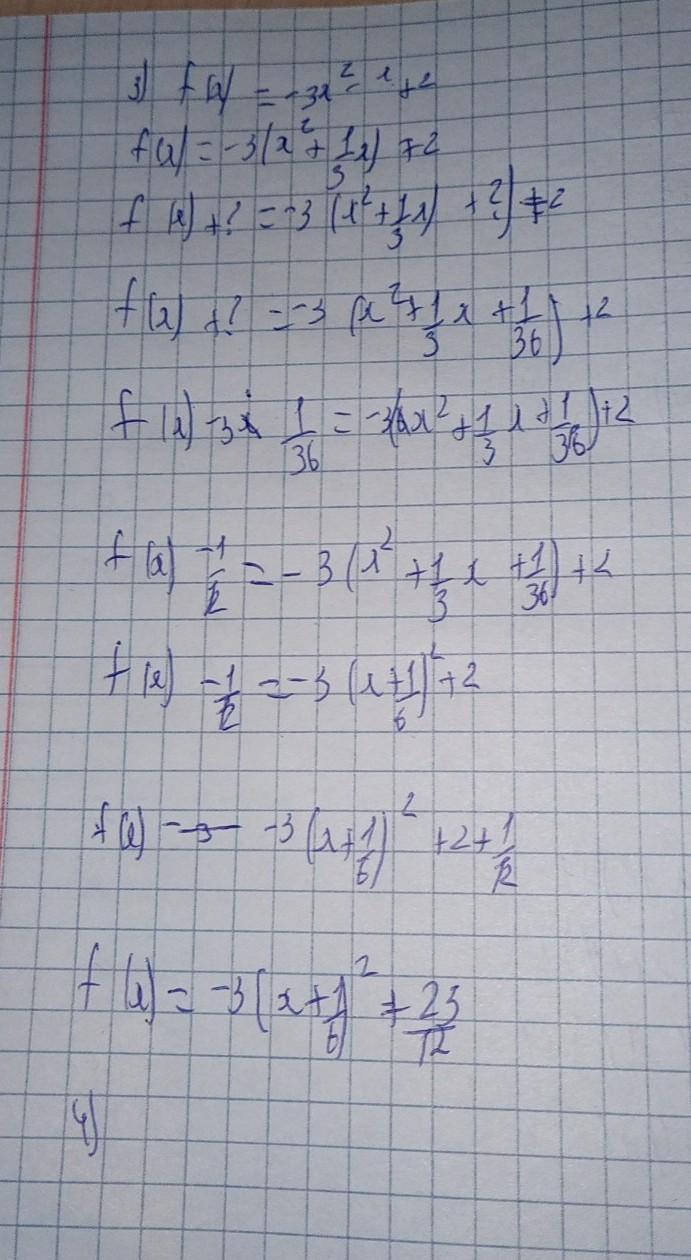 3) f(x) = -3x² - x + 2
f(x) = -3(x² + 1/3 x) + 2
f(x) + ? = -3 (x² + 1/3 x) + ?) + 2
f(x) + ? = -3 (x² + 1/3 x + 1/36) + 2
f(x) - 3x 1/36 = -3(x² + 1/3 x + 1/36) + 2
f(x) - 1/12 = -3(x² + 1/3 x + 1/36) + 2
f(x) - 1/12 = -3(x + 1/6)² + 2
f(x) = -3(x + 1/6)² + 2 + 1/12
f(x) = -3(x + 1/6)² + 25/12
4)